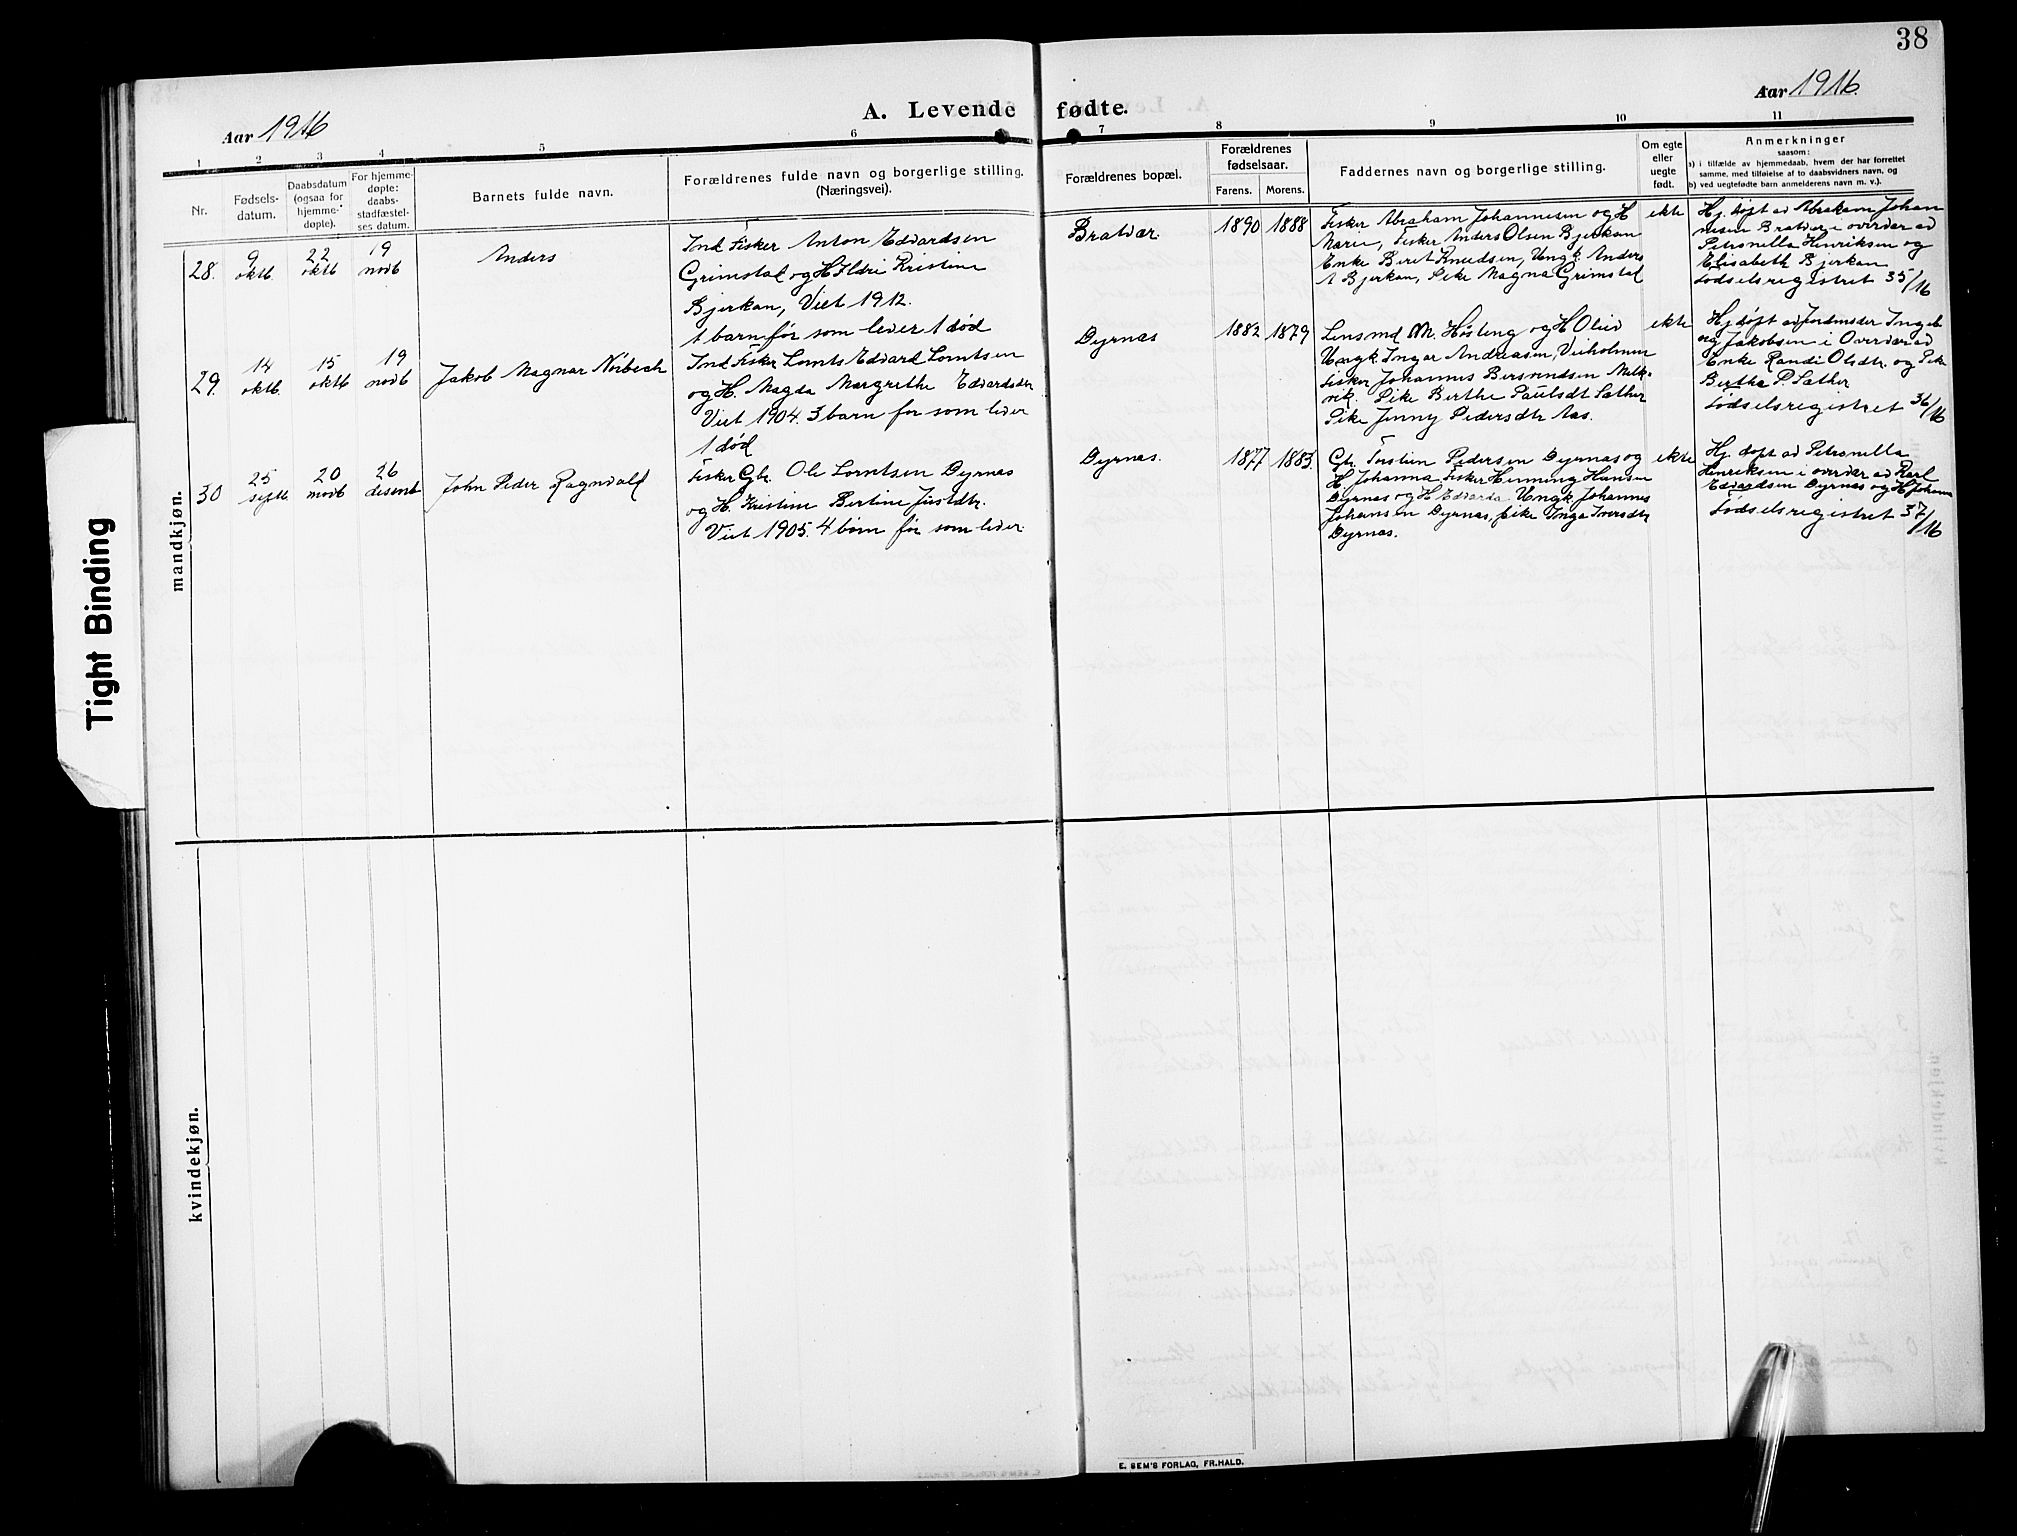 38
Aar 1916
A. Levende fødte.
Aar 1916.
1 2 3 4 5 6 7 8 9 10 11
Nr.
Fødsels-
datum.
Daabsdatum
(ogsaa for
hjemme-
døpte).
For hjemme-
døpte:
daabs-
stadfæstel-
ses datum.
Barnets fulde navn.
Forældrenes fulde navn og borgerlige stilling.
(Næringsvei).
Forældrenes bopæl.
Forældrenes
fødselsaar.
Farens. Morens.
Faddernes navn og borgerlige stilling.
Om egte
eller
uegte
født.
Anmerkninger
saasom:
a) i tilfælde av hjemmedaab, hvem der har forrettet
samme, med tilføielse af to daabsvidners navn, og
b) ved uegtefødte barn anmelderens navn m. v.).
mandkjøn.
28.
9
oktb.
22
oktb
19
novb
Anders
Ind Fisker Anton Edvardsen
Grimstad og H Ildri Kristine
Bjerkan, Viet 1912.
1 barn før som lever 1 død
Bratvær.
1890 1888
Fisker Abraham Johannesen og H
Marie, Fisker Anders Olsen Bjerkan
Enke Beret Knudsen, Ungk. Anders
A Bjerkan, Pike Magna Grimstad
ekte
Hj. døpt av Abraham Johan
nesen Bratvær i overvær av
Petronella Henriksen og
Elisabeth Bjerkan
Fødselsregistret 35/16
29.
14
oktb.
15
oktb
19
novb
Jakob Magnar Norbech
Ind Fisker Lornts Edvard Lorntsen
og H. Magda Margrethe Edvardsdtr
Viet 1904. 3 barn før som lever
1 død
Dyrnas
1882 1879
Lensmd M. Høsteng og H Olid
Ungk. Ingar Andreasen, Veiholmen
Fisker Johannes Bersvendsen Melk-
vik. Pike Berthe Paulsdt Sæther
Pike Jenny Pedersdtr Aas.
ekte
Hj døpt av Jordmoder Ingeb
org Jakobsen i Overvær av
Enke Randi Olsdtr. og Pike
Berthe P. Sæther
Fødselsregistret 36/16
30
25
septb.
20
novb
26
desemb
John Peder Ragnvald
Fisker Gbr. Ole Lorntsen Dyrnas
og H. Kristine Bertine Justdtr.
Viet 1905. 4 børn før som lever.
Dyrnas.
1877 1883.
Gbr. Torstein Pedersen Dyrnas og
H Johanna Fisker Henning Hansen
Dyrnas og H Edvarda. Ungk Johannes
Johansen Dyrnas, pike Inga Iversdtr
Dyrnas.
ekte
Hj. døpt av Petronella
Henriksen i overvær av Karl
Edvardsen Dyrnas og H Johanna
Fødselsregistret 37/16
kvindekjøn.
Tight Binding
E. SEM'S FORLAG, FR.HALD.